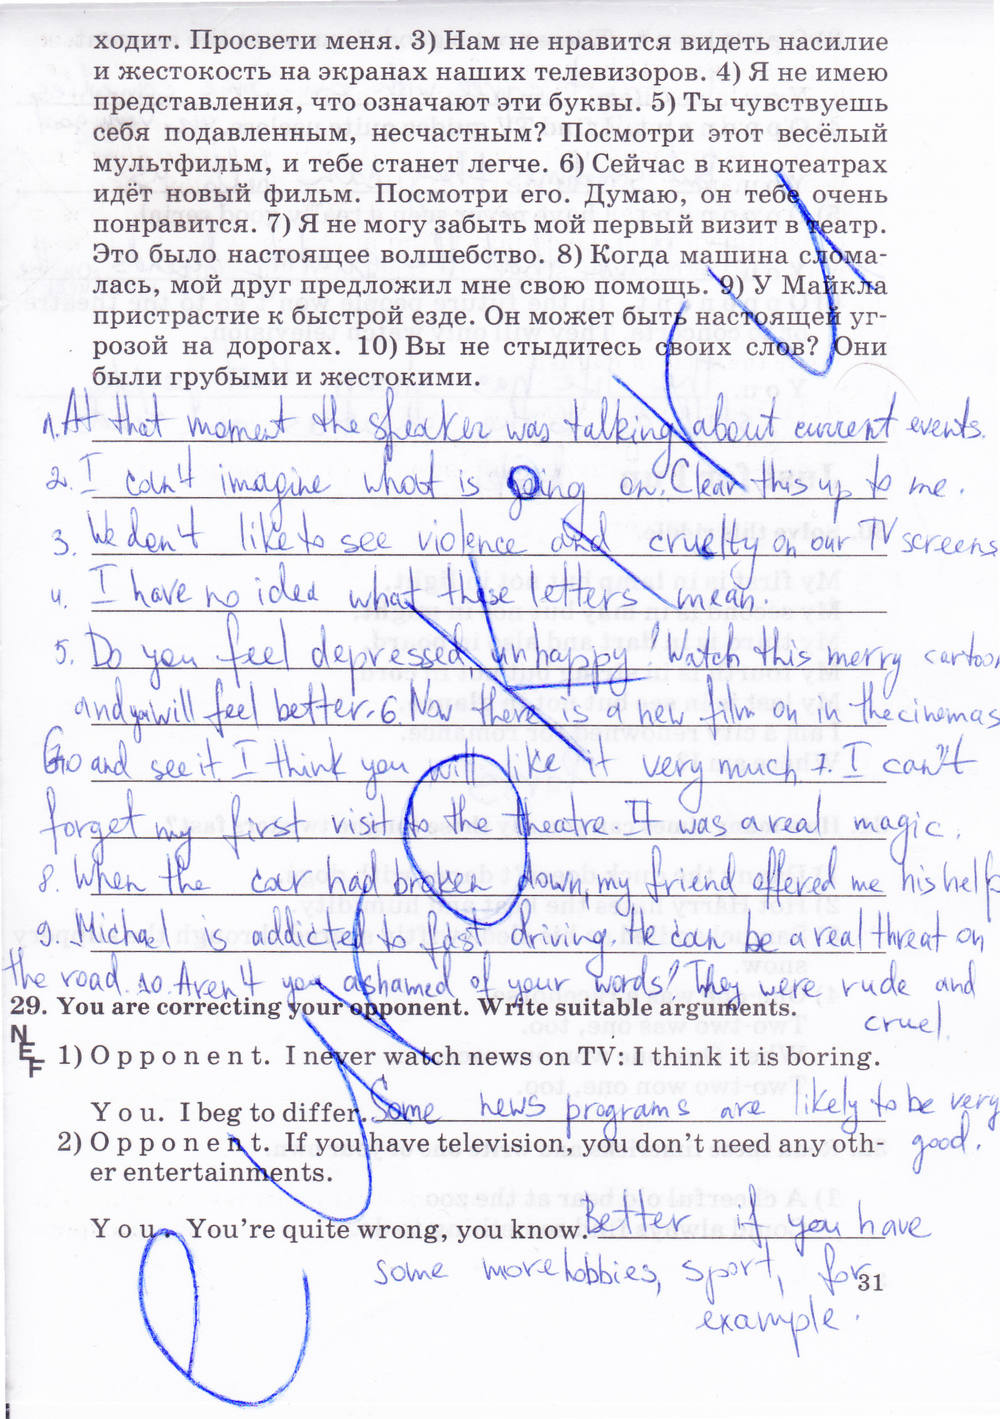 ходит. Просвети меня. 3) Нам не нравится видеть насилие
и жестокость на экранах наших телевизоров. 4) Я не имею
представления, что означают эти буквы. 5) Ты чувствуешь
себя подавленным, несчастным? Посмотри этот весёлый
мультфильм, и тебе станет легче. 6) Сейчас в кинотеатрах
идёт новый фильм. Посмотри его. Думаю, он тебе очень
понравится. 7) Я не могу забыть мой первый визит в театр.
Это было настоящее волшебство. 8) Когда машина слома-
лась, мой друг предложил мне свою помощь. 9) У Майкла
пристрастие к быстрой езде. Он может быть настоящей уг-
розой на дорогах. 10) Вы не стыдитесь своих слов? Они
были грубыми и жестокими.
1. At that moment the speaker was talking about current events.
2. I can't imagine what is going on. Clear this up to me.
3. We don't like to see violence and cruelty on our TV screens
4. I have no idea what these letters mean.
5. Do you feel depressed, unhappy? Watch this merry cartoon
and you will feel better. 6. Now there is a new film on in the cinemas
Go and see it I think you will like it very much. 7. I can't
forget my first visit to the theatre. It was a real magic.
8. When the car had broken down, my friend offered me his help
9. Michael is addicted to fast driving. He can be a real threat on
the road. 10. Aren't you ashamed of your words? They were rude and
cruel.
29. You are correcting your opponent. Write suitable arguments.
NEF
1) Opponent. I never watch news on TV: I think it is boring.
You. I beg to differ. Some news programs are likely to be very
good.
2) Opponent. If you have television, you don't need any oth-
er entertainments.
You. You're quite wrong, you know. Better if you have
some more hobbies, sport, for
example.
31